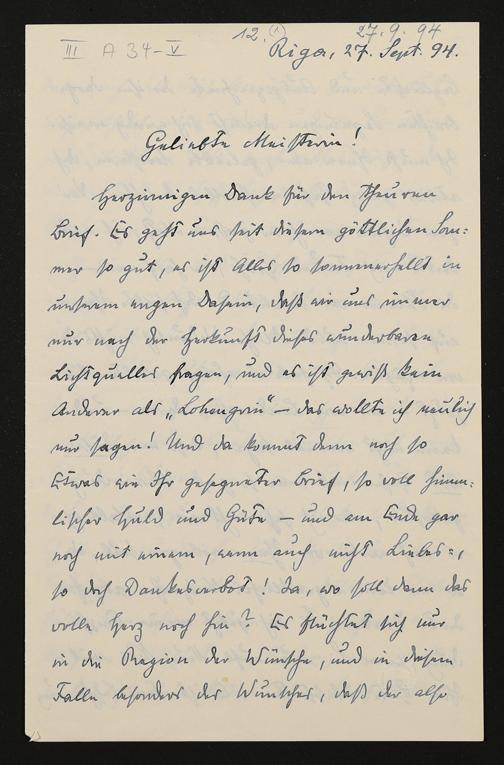 12. (1) 27. 9. 94
III A 34 - V
Riga, 27. Sept. 94.
Geliebte Meisterin!
Herzinnigen Dank für den theuren
Brief. Es geht uns seit diesem göttlichen Som=
mer so gut, es ist Alles so sonnenerhellt in
unserem engen Dasein, daß wir uns immer
nur nach der Herkunft dieses wunderbaren
Lichtquelles fragen, und es ist gewiß kein
Anderer als „Lohengrin" – das wollte ich neulich
nur sagen! Und da kommt denn noch so
Etwas wie Ihr gesegneter Brief, so voll himm=
lischer Huld und Güte – und am Ende gar
noch mit einem, wenn auch nicht Liebes=,
so doch Dankesverbot! Ja, wo soll dann das
volle Herz noch hin? Es flüchtet sich nur
in die Region der Wünsche, und in diesem
Falle besonders des Wunsches, daß der also